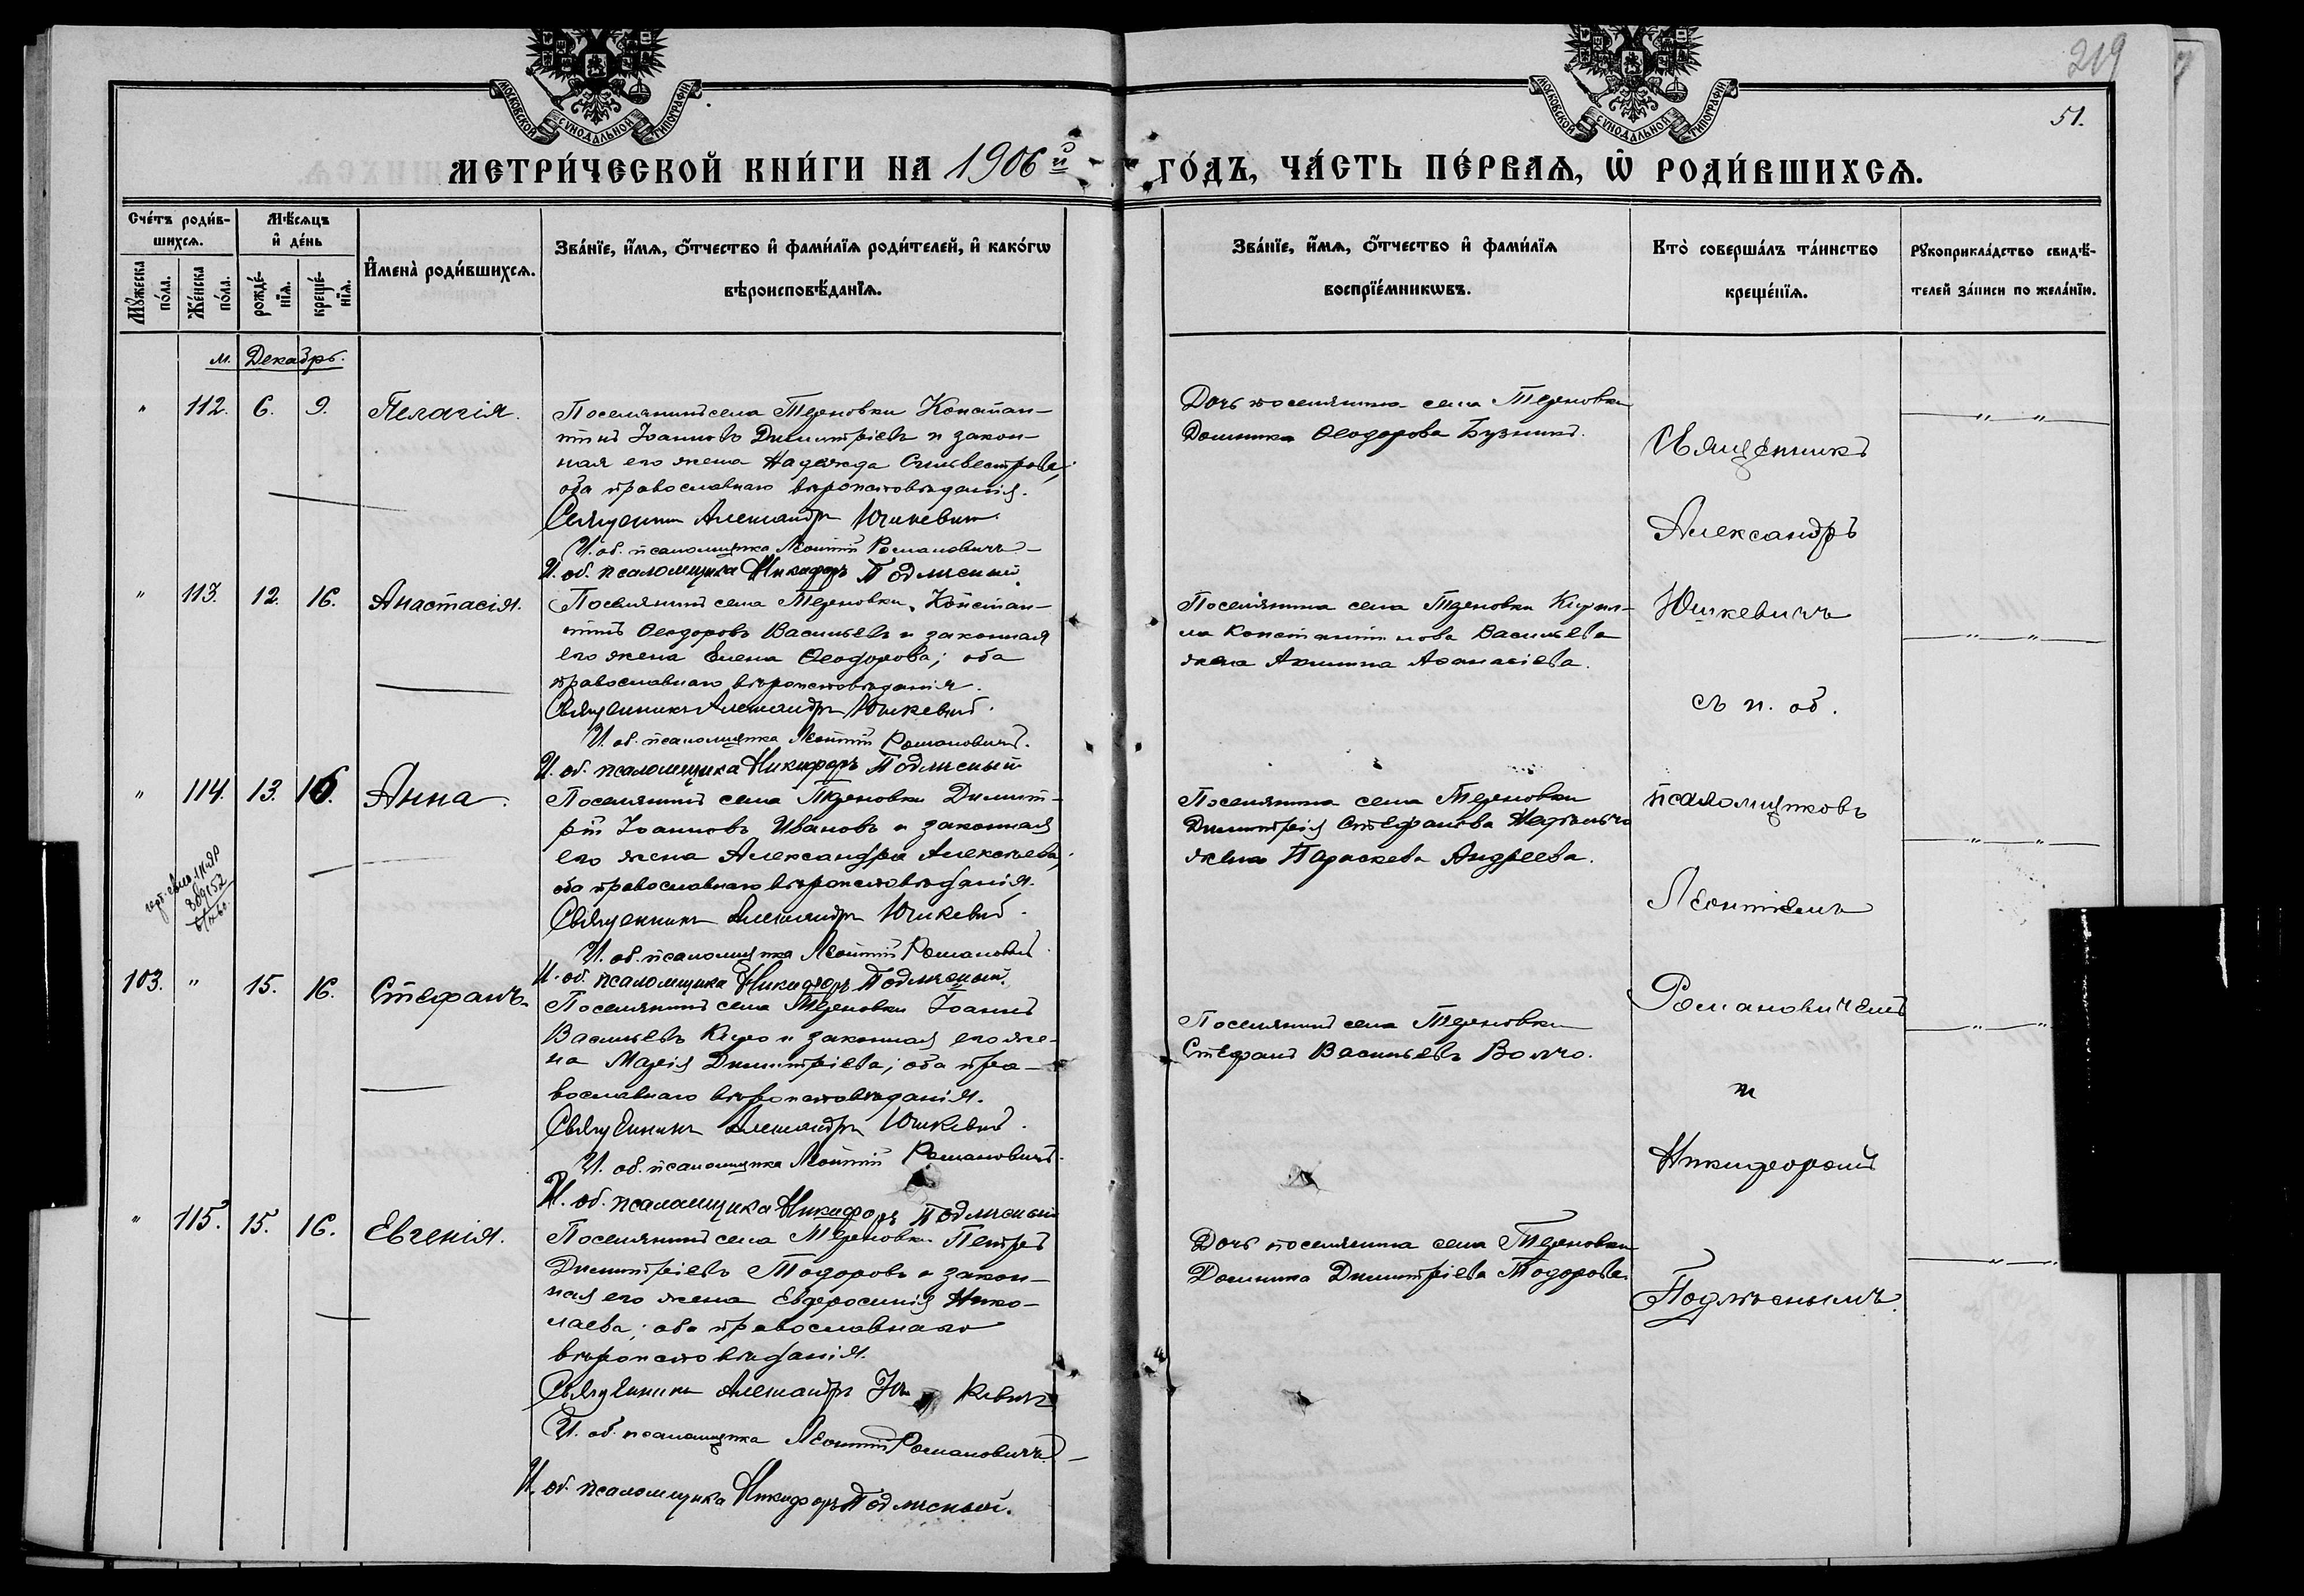 219
51.
МОСКОВСКОЙ СѴНОДАЛЬНОЙ ТИПОГРАФІИ
МОСКОВСКОЙ СѴНОДАЛЬНОЙ ТИПОГРАФІИ
МЕТРИ́ЧЕСКОЙ КНИ́ГИ НА 1906й ГО́ДЪ, ЧА́СТЬ ПЕ́РВАЯ, Ѿ РОДИ́ВШИХСЯ.
Сче́тъ роди́в-
шихся.
Мꙋ́жеска по́ла.
Же́нска по́ла.
Мѣ́сяцъ
и҆ де́нь
рожде́-
нїя.
креще́-
нїя.
И҆мена̀ роди́вшихся.
Зва́нїе, и҆́мя, ѻ҆́тчество и҆ фами́лїя роди́телей, и҆ како́гѡ
вѣроисповѣ́данїя.
Зва́нїе, и҆́мя, ѻ҆́тчество и҆ фами́лїя
воспрїе́мникѡвъ.
Кто̀ соверша́лъ та́инство
креще́нїя.
Рꙋкоприкла́дство свидѣ́-
телей за́писи по жела́нїю.
м. Декабрь.
" 112. 6. 9. Пелагія.
Поселянинъ села Терновки Констан-
тинъ Іоанновъ Димитріевъ и закон-
ная его жена Надежда Сильвестрова,
оба православнаго вѣроисповѣданія.
Священникъ Александръ Юшкевичъ.
И. об. псаломщика Леонтій Романовичъ
И. об. псаломщика Никифоръ Подлѣсный.
Дочь поселянина села Терновки
Домника Ѳеодорова Бузникъ.
" 113. 12. 16. Анастасія.
Поселянинъ села Терновки, Констан-
тинъ Ѳеодоровъ Васильевъ и законная
его жена Елена Ѳеодорова; оба
православнаго вѣроисповѣданія.
Священникъ Александръ Юшкевичъ.
И. об. псаломщика Леонтій Романовичъ.
И. об. псаломщика Никифоръ Подлѣсный
Поселянина села Терновки Кирил-
ла Константинова Васильева
жена Акилина Аѳанасіева.
" 114. 13. 16. Анна.
Поселянинъ села Терновки Димит-
рій Іоанновъ Ивановъ и законная
его жена Александра Алексѣева,
оба православнаго вѣроисповѣданія.
Священникъ Александръ Юшкевичъ.
И. об. псаломщика Леонтій Романовичъ.
И. об. псаломщика Никифоръ Подлѣсный.
Поселянина села Терновки
Димитрія Стефанова
жена Параскева Андреева.
103. " 15. 16. Стефанъ.
Поселянинъ села Терновки Іоаннъ
Васильевъ и законная его же-
на Марія Димитріева; оба пра-
вославнаго вѣроисповѣданія.
Священникъ Александръ Юшкевичъ.
И. об. псаломщика Леонтій Романовичъ.
И. об. псаломщика Никифоръ Подлѣсный
Поселянинъ села Терновки
Стефанъ Васильевъ Волчо.
" 115. 15. 16. Евгенія.
Поселянинъ села Терновки Петръ
Димитріевъ Тодоровъ и закон-
ная его жена Евфросинія Нико-
лаева; оба православнаго
вѣроисповѣданія.
Священникъ Александръ Юшкевичъ
И. об. псаломщика Леонтій Романовичъ
И. об. псаломщика Никифоръ Подлѣсный.
Дочь поселянина села Терновки
Домника Димитріева Тодорова.
Священникъ
Александръ
Юшкевичъ
съ и. об.
псаломщиковъ
Леонтіемъ
Романовичемъ
и
Никифоромъ
Подлѣснымъ.